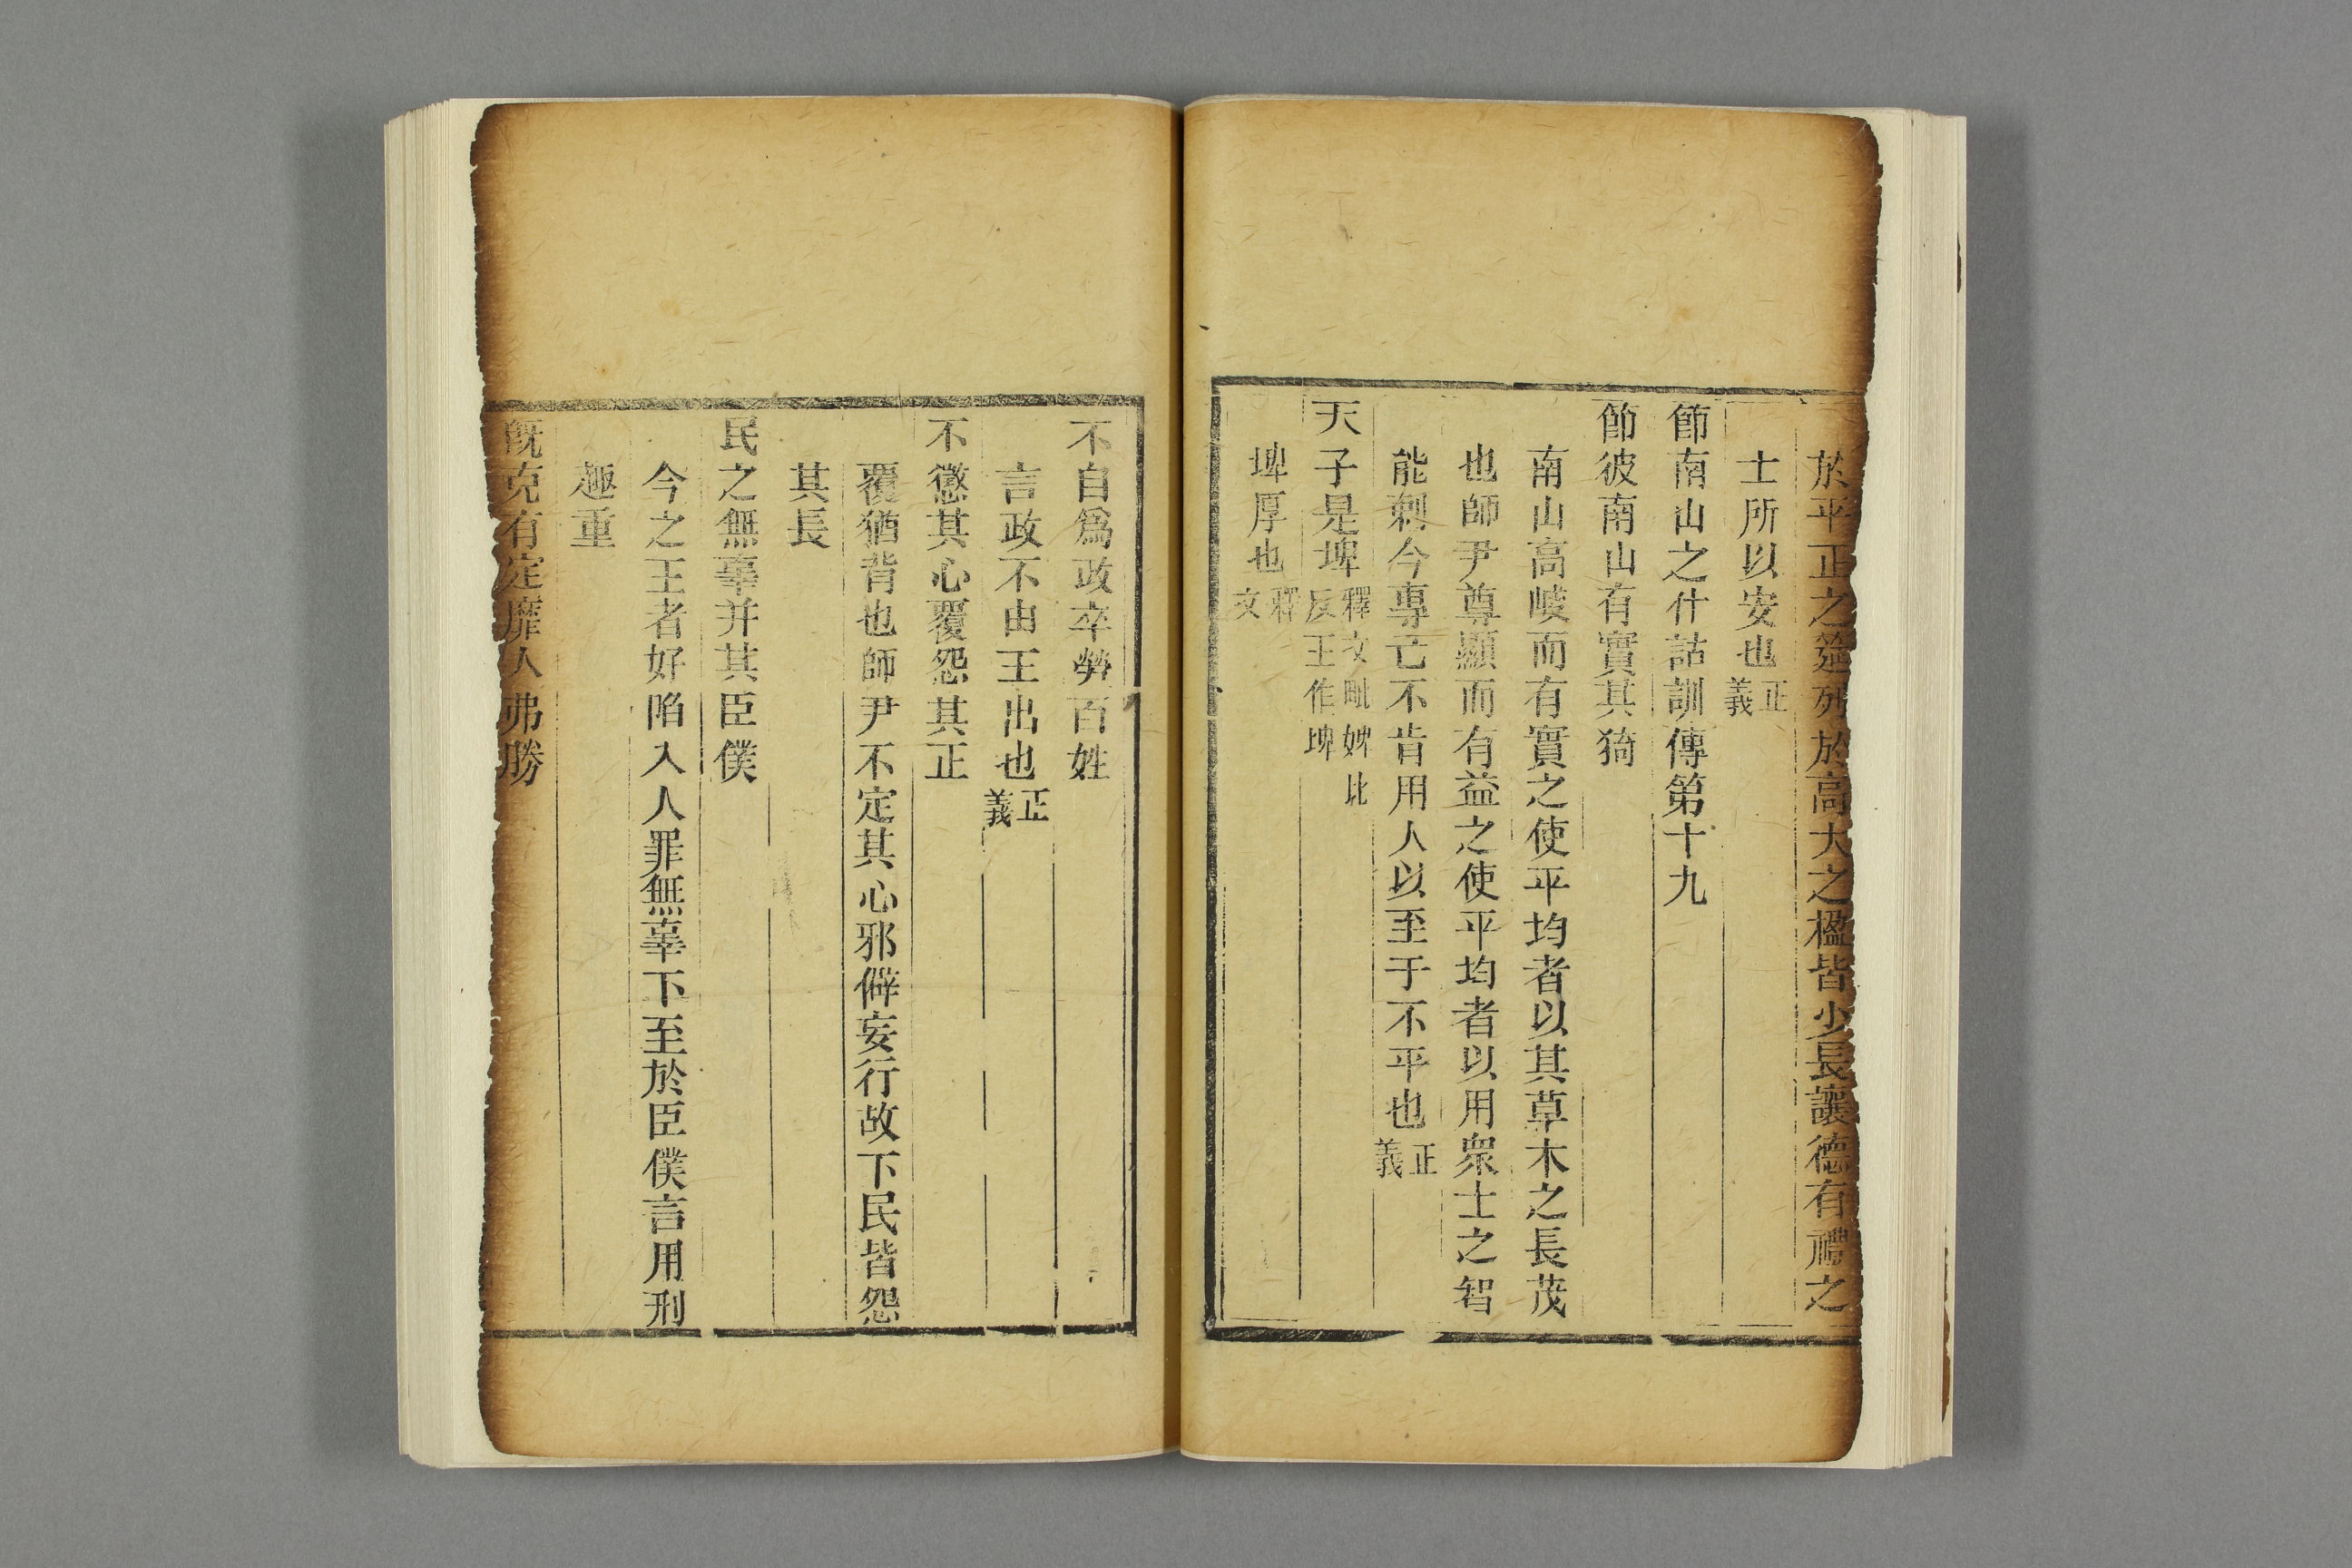 於平正之筵列於高大之楹皆少長讓德有禮之
士所以安也正義
節南山之什詁訓傳第十九
節彼南山有實其猗
南山高峻而有實之使平均者以其草木之長茂
也師尹尊顯而有益之使平均者以用衆士之智
能剌今專亡不肯用人以至于不平也正義
天子是埤釋文毗婢比反王作埤
埤厚也釋文
不自爲政卒勞百姓
言政不由王出也正義
不懲其心覆怨其正
覆猶背也師尹不定其心邪僻妄行故下民皆怨
其長
民之無辜并其臣僕
今之王者好陷入人罪無辜下至於臣僕言用刑
趣重
旣克有定靡人弗勝